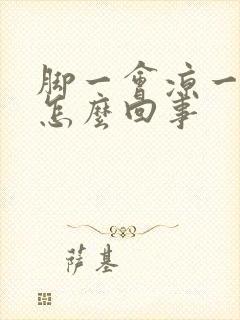 脚一會凉一
怎麼回事
萨基